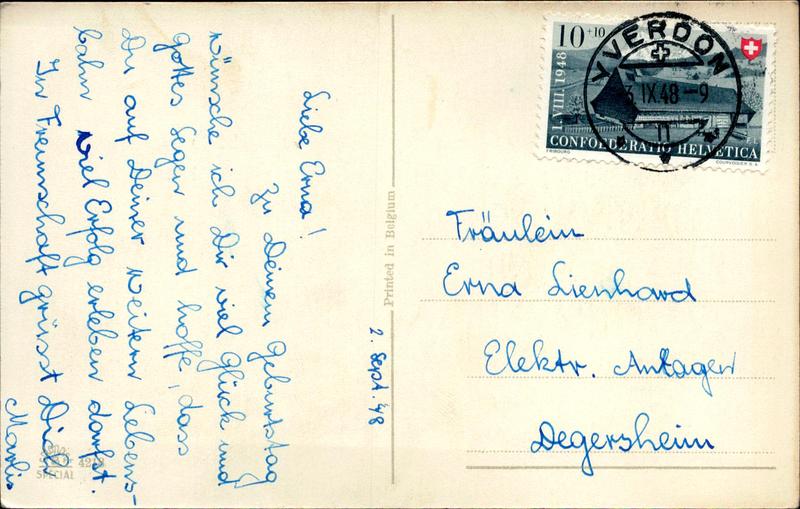 Liebe Erna!
Zu Deinem Geburtstag
wünsche ich Dir viel Glück und
Gottes Segen und hoffe, dass
Du auf Deiner weitern Lebens-
bahn viel Erfolg erleben darfst.
In Freundschaft grüsst Dich
Marlis
2. Sept. 48
Printed in Belgium
SPECIAL
10+10
1.VIII.1948
CONFOEDERATIO HELVETICA
FRIBOURG
COURVOISIER S.A.
YVERDON
3.IX.48-9
Fräulein
Erna Lienhard
Elektr. Anlagen
Degersheim